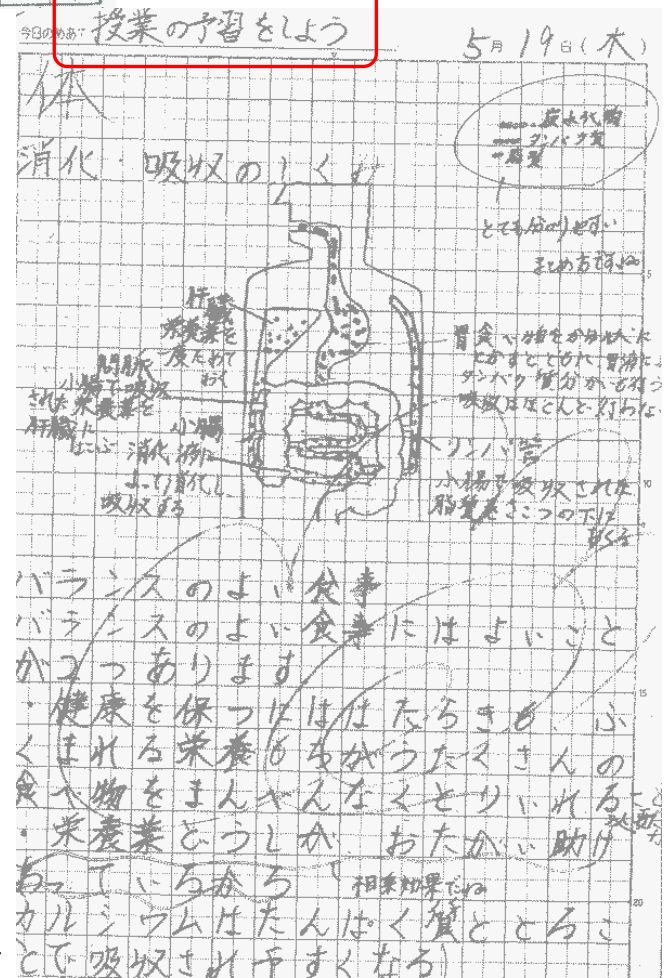 今日のめあて 授業の予習をしよう
5月19日(木)
体
炭水化物
タンパク質
脂質
消化・吸収のしくみ
とても分かりやすい
まとめ方ですね
肝臓
栄養素を
一度ためて
おく
門脈
小腸で吸収
された栄養素を
肝臓に
はこぶ
小腸
消化液に
よって消化し、
吸収する
胃 食べ物を
とかすとともに胃液に
タンパク質分かいも行う
吸収はほとんど行わない
リンパ管
小腸で吸収された
脂質を
バランスのよい食事
バランスのよい食事にはよいこと
が2つあります
・健康を保つにははたらきも、ふ
くまれる栄養もちがうたくさんの
食べ物をまんべんなくとりいれる
・栄養素どうしが、おたがい助け
あっているから
相乗効果だね
カルシウムはたんぱく質ととるこ
とで吸収されやすくなる)